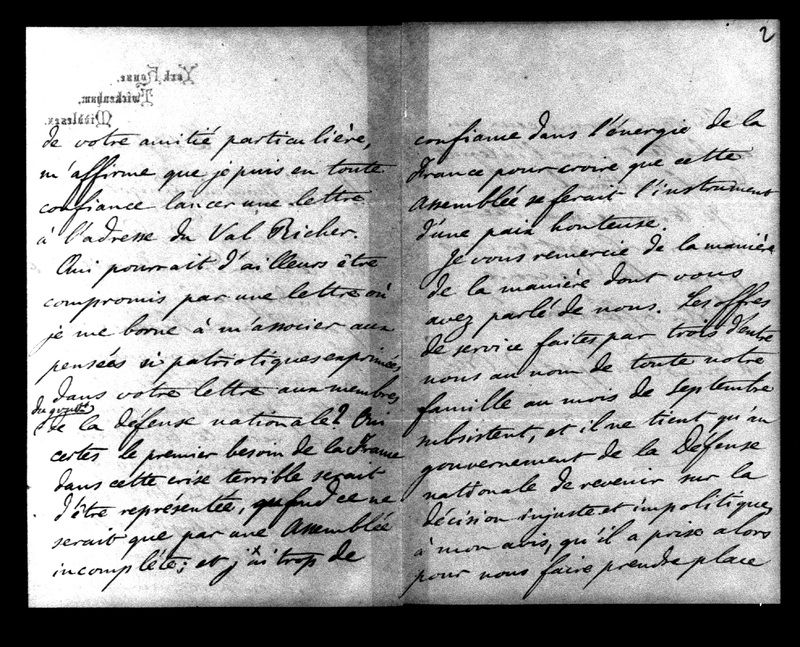 2
York House.
Twickenham.
Middlesex.
de votre amitié particulière,
m'affirme que je puis en toute
confiance lancer une lettre
à l'adresse du Val Richer.
Qui pourrait d'ailleurs être
compromis par une lettre où
je me borne à m'associer aux
pensées si patriotiques exprimées
dans votre lettre aux membres
du gouvt
de la défense nationale? Oui
certes le premier besoin de la France
dans cette crise terrible serait
d'être représentée, ce ne
serait que par une Assemblée
incomplète; et j'ai trop de
confiance dans l'énergie de la
France pour croire que cette
Assemblée se ferait l'instrument
d'une paix honteuse.
Je vous remercie de la manière
de la manière dont vous
avez parlé de nous. Les offres
de service faites par trois d'entre
nous au nom de toute notre
famille au mois de Septembre
subsistent, et il ne tient qu'au
gouvernement de la Défense
nationale de revenir sur la
décision injuste et impolitique,
à mon avis, qu'il a prise alors
pour nous faire prendre place